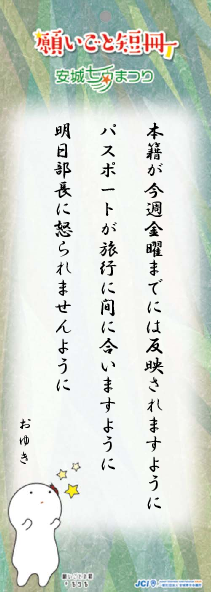 願いごと短冊
安城七夕まつり
本籍が今週金曜までには反映されますように
パスポートが旅行に間に合いますように
明日部長に怒られませんように
おゆき
JCI